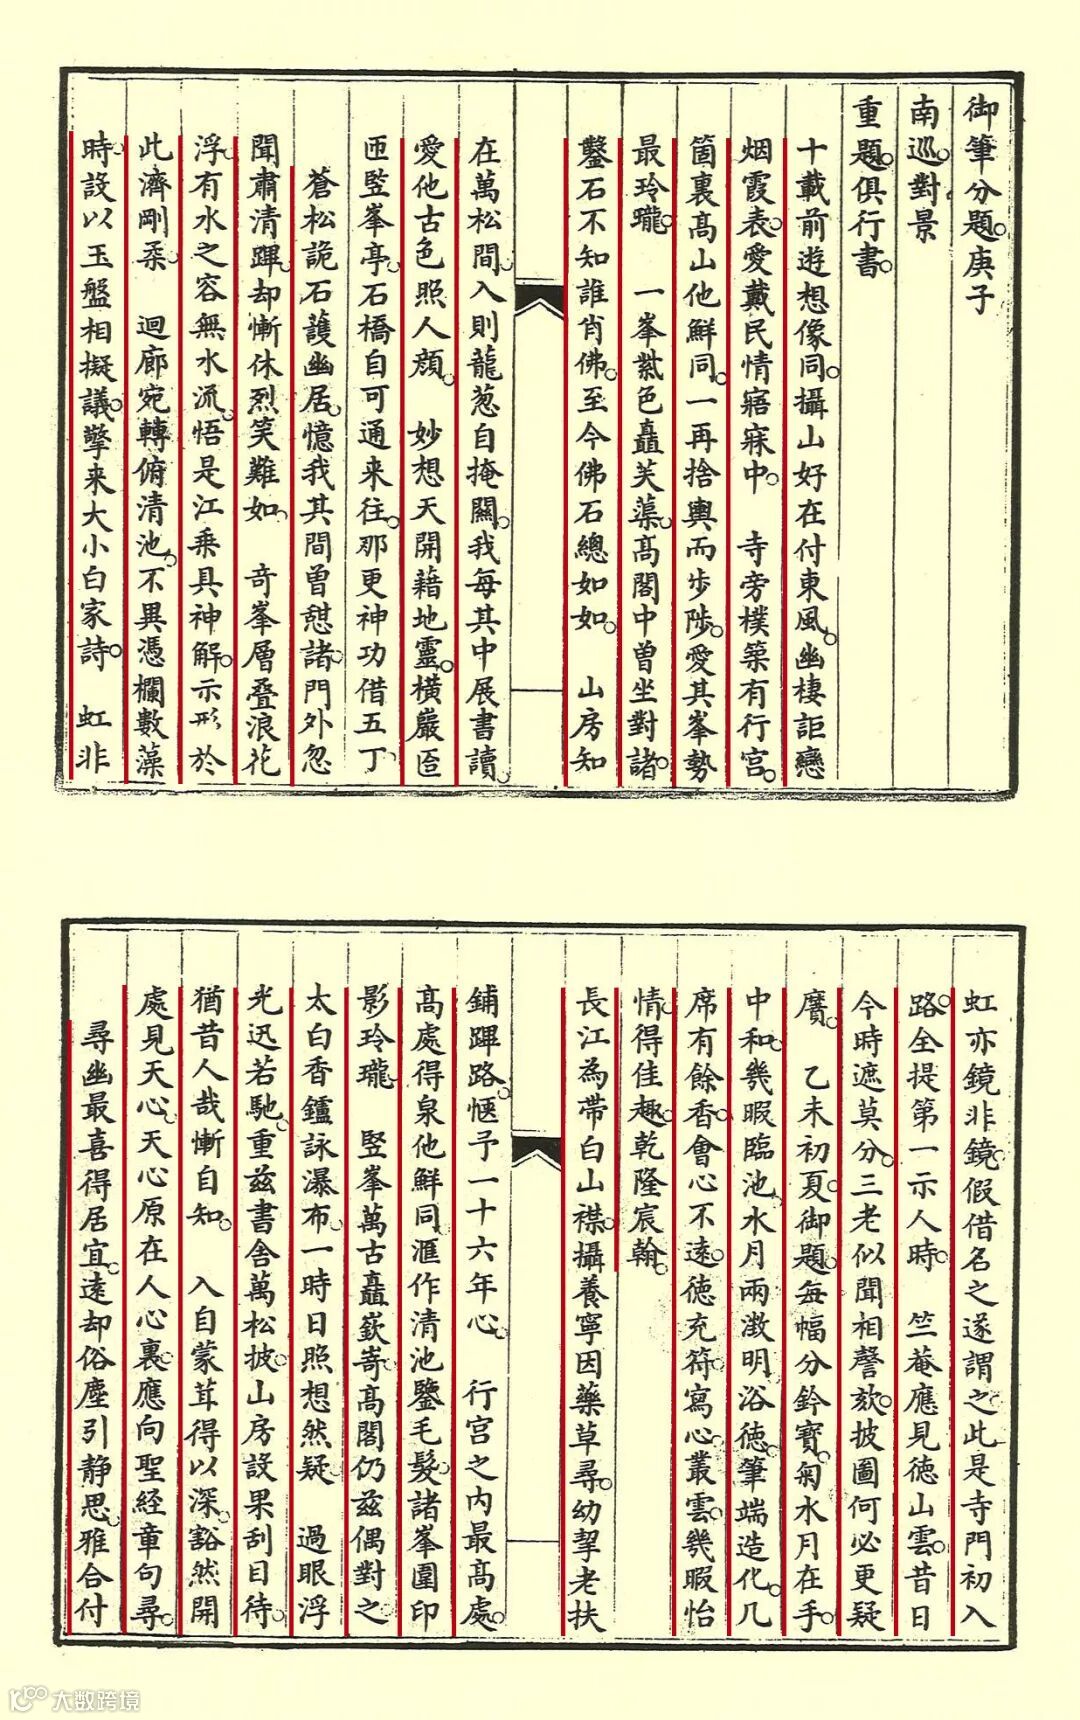 御筆分題庚子
南巡對景
重題俱行書
十載前遊想像同攝山好在付東風幽棲詎戀
烟霞表愛戴民情寤寐中 寺旁樸築有行宫
箇裏髙山他鮮同一再捨輿而步陟愛其峯勢
最玲瓏 一峯紫色矗芙蕖髙閣中曽坐對諸
鑿石不知誰肖佛至今佛石總如如 山房知
在萬松間入則龍葱自掩關我每其中展書讀
愛他古色照人顔 妙想天開藉地靈橫巖匼
匝豎峯亭石橋自可通来往那更神功借五丁
蒼松詭石護幽居憶我其間曽憇諸門外忽
聞肅清蹕却慚休烈笑難如 竒峯層叠浪花
浮有水之容無水流悟是江乗具神解示形於
此濟剛柔 迴廊宛轉俯清池不異憑欄數藻
時設以玉盤相擬議擎来大小白家詩 虹非
虹亦鏡非鏡假借名之遂謂之此是寺門初入
路全提第一示人時 竺菴應見徳山雲昔日
今時遮莫分三老似聞相謦欬披圖何必更疑
贗 乙未初夏御題每幅分鈐寳菊水月在手
中和幾暇臨池水月兩澂明浴徳筆端造化几
席有餘香會心不逺徳充符寫心叢雲幾暇怡
情得佳趣乾隆宸翰
長江為帶白山襟攝養寧因藥草尋幼挈老扶
鋪蹕路惬予一十六年心 行宫之内最髙處
髙處得泉他鮮同滙作清池鑒毛髮諸峯圍印
影玲瓏 竪峯萬古矗嶔嵜髙閣仍兹偶對之
太白香鑪詠瀑布一時日照想然疑 過眼浮
光迅若馳重兹書舎萬松披山房設果刮目待
猶昔人哉慚自知 入自蒙茸得以深豁然開
處見天心天心原在人心裏應向聖経章句尋
尋幽最喜得居宜逺却俗塵引静思雅合付
大数跨境